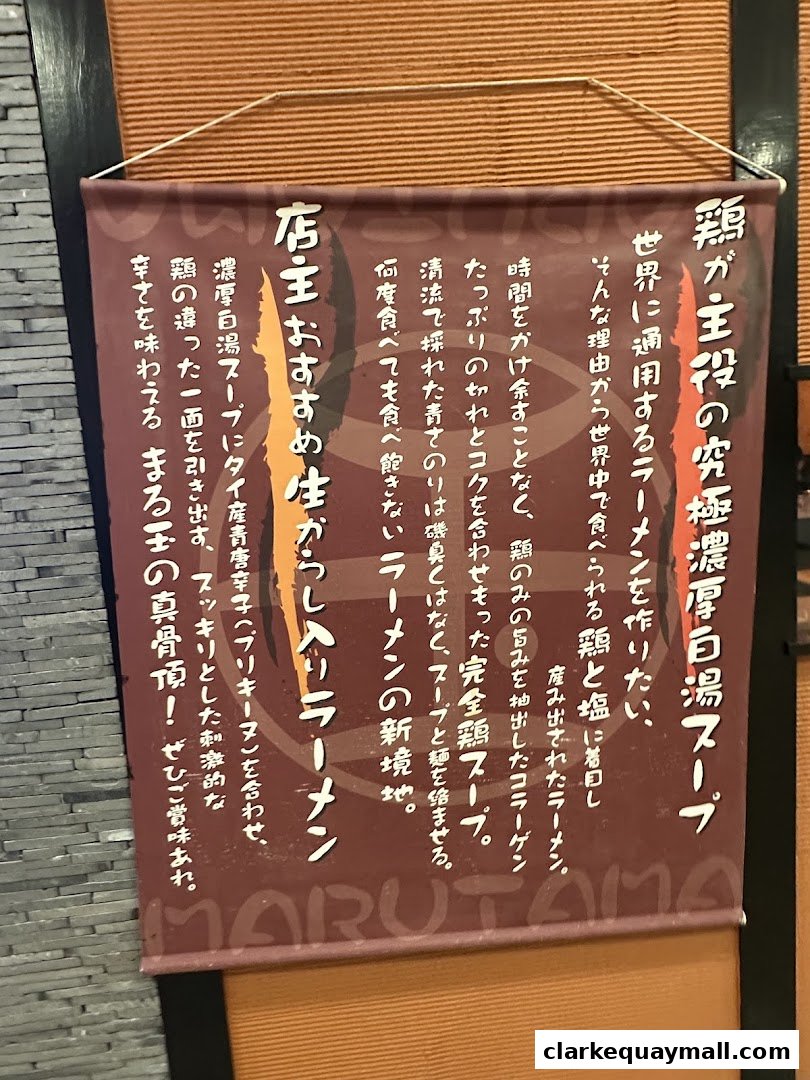 鶏が主役の究極濃厚白湯スープ
世界に通用するラーメンを作りたい、
そんな理由から世界中で食べられる鶏と塩に着目し
産み出されたラーメン。
時間をかけ余すことなく、鶏のみの旨みを抽出したコラーゲン
たっぷりのキレとコクを合わせもった完全鶏スープ。
清流で採れた青さのりは磯臭くはなく、スープと麺を絡ませる。
何度食べても食べ飽きないラーメンの新境地。
店主おすすめ生からし入りラーメン
濃厚白湯スープにタイ産青唐辛子(プリキーヌ)を合わせ、
鶏の違った一面を引き出す、スッキリとした刺激的な
辛さを味わえる まる玉の真骨頂！ぜひご賞味あれ。
MARUTAMA
clarkequaymall.com